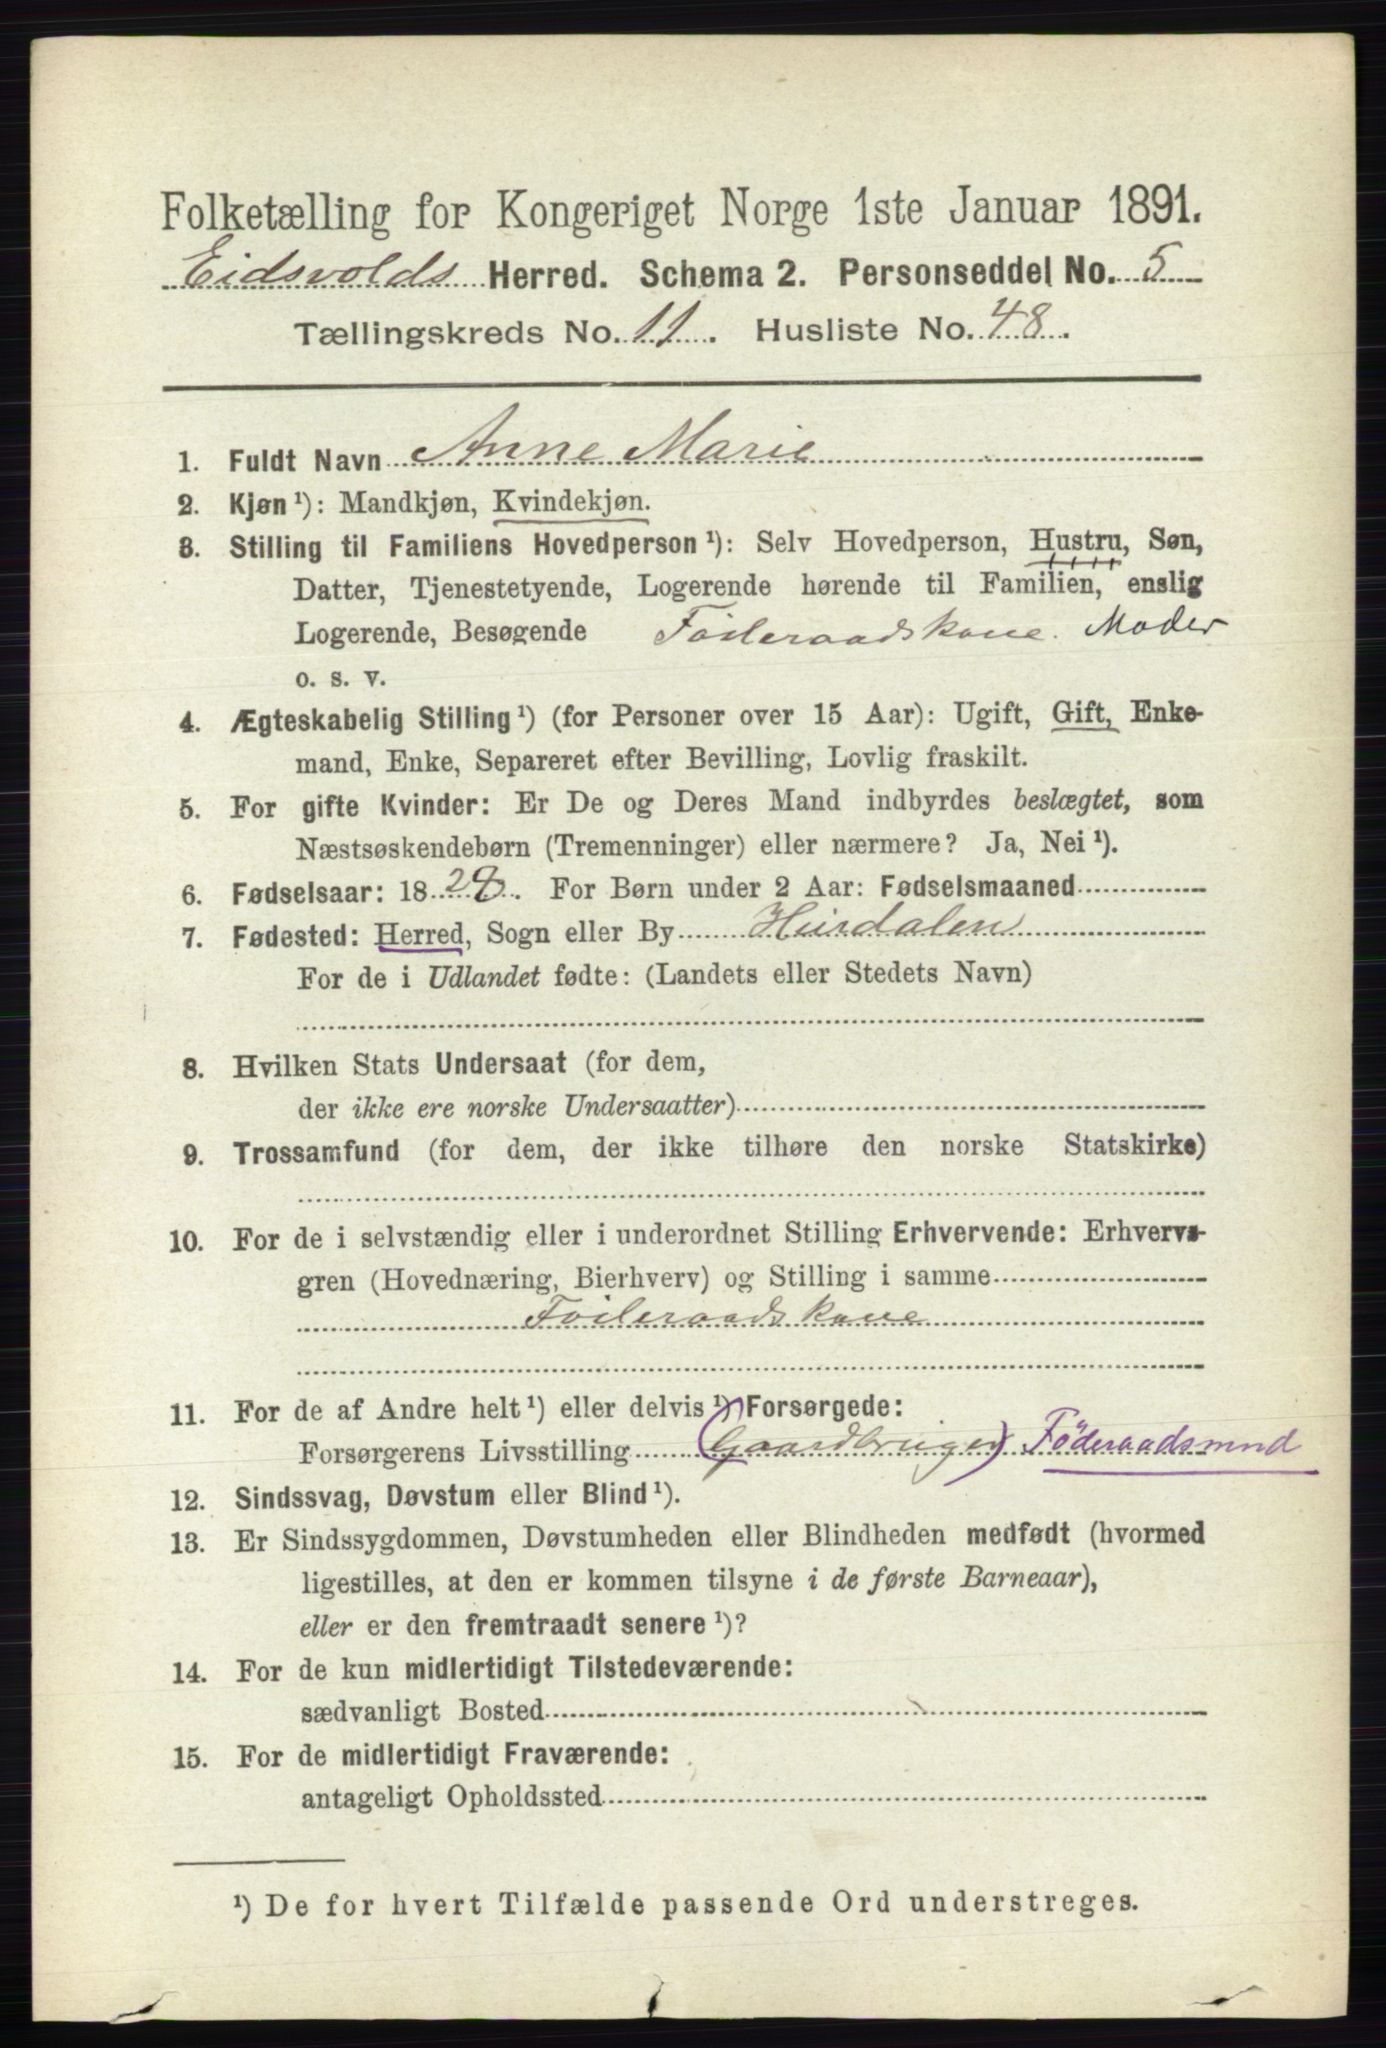 Folketælling for Kongeriget Norge 1ste Januar 1891.
Eidsvolds Herred. Schema 2. Personseddel No. 5
Tællingskreds No. 11. Husliste No. 48.
1. Fuldt Navn Anne Marie
2. Kjøn ¹): Mandkjøn, Kvindekjøn.
3. Stilling til Familiens Hovedperson ¹): Selv Hovedperson, Hustru, Søn,
Datter, Tjenestetyende, Logerende hørende til Familien, enslig
Logerende, Besøgende Foileraadskone. Moder
o. s. v.
4. Ægteskabelig Stilling ¹) (for Personer over 15 Aar): Ugift, Gift, Enke-
mand, Enke, Separeret efter Bevilling, Lovlig fraskilt.
5. For gifte Kvinder: Er De og Deres Mand indbyrdes beslægtet, som
Næstsøskendebørn (Tremenninger) eller nærmere? Ja, Nei ¹).
6. Fødselsaar: 1828. For Børn under 2 Aar: Fødselsmaaned
7. Fødested: Herred, Sogn eller By Hurdalen
For de i Udlandet fødte: (Landets eller Stedets Navn)
8. Hvilken Stats Undersaat (for dem,
der ikke ere norske Undersaatter)
9. Trossamfund (for dem, der ikke tilhøre den norske Statskirke)
10. For de i selvstændig eller i underordnet Stilling Erhvervende: Erhvervs-
gren (Hovednæring, Bierhverv) og Stilling i samme
Foileraadskone
11. For de af Andre helt ¹) eller delvis ¹) Forsørgede:
Forsørgerens Livsstilling (Gaardbruger) Föderaadsmnd
12. Sindssvag, Døvstum eller Blind ¹).
13. Er Sindssygdommen, Døvstumheden eller Blindheden medfødt (hvormed
ligestilles, at den er kommen tilsyne i de første Barneaar),
eller er den fremtraadt senere ¹)?
14. For de kun midlertidigt Tilstedeværende:
sædvanligt Bosted
15. For de midlertidigt Fraværende:
antageligt Opholdssted
¹) De for hvert Tilfælde passende Ord understreges.